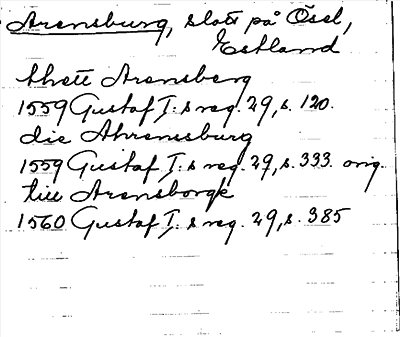 Arensburg, slott på Ösel,
Estland
thett Arensberg
1559 Gustaf I:s reg. 29, s. 120.
die Ahrensburg
1559 Gustaf I:s reg. 29, s. 333. orig.
till Arensborgk
1560 Gustaf I:s reg. 29, s. 385